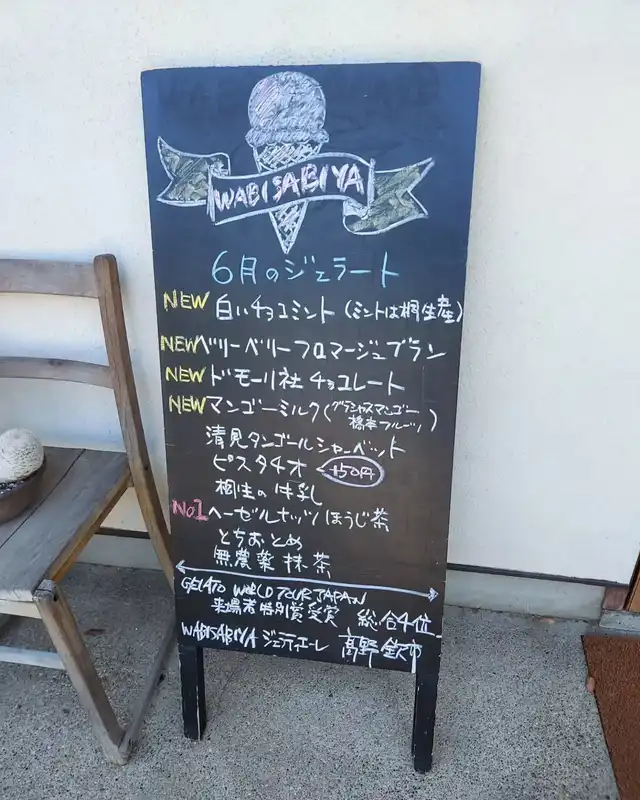 WABISABIYA
6月のジェラート
NEW 白いチョコミント (ミントは桐生産)
NEW ベリーベリーフロマージュブラン
NEW ドモーリ社 チョコレート
NEW マンゴーミルク (グラシャスマンゴー 橋本フルーツ)
清見タンゴールシャーベット
ピスタチオ +50円
桐生の牛乳
No1 ヘーゼルナッツほうじ茶
とちおとめ
無農薬 抹茶
GELATO WORLD TOUR JAPAN
来場者特別賞受賞 総合4位
WABISABIYA ジェラティエーレ 高野